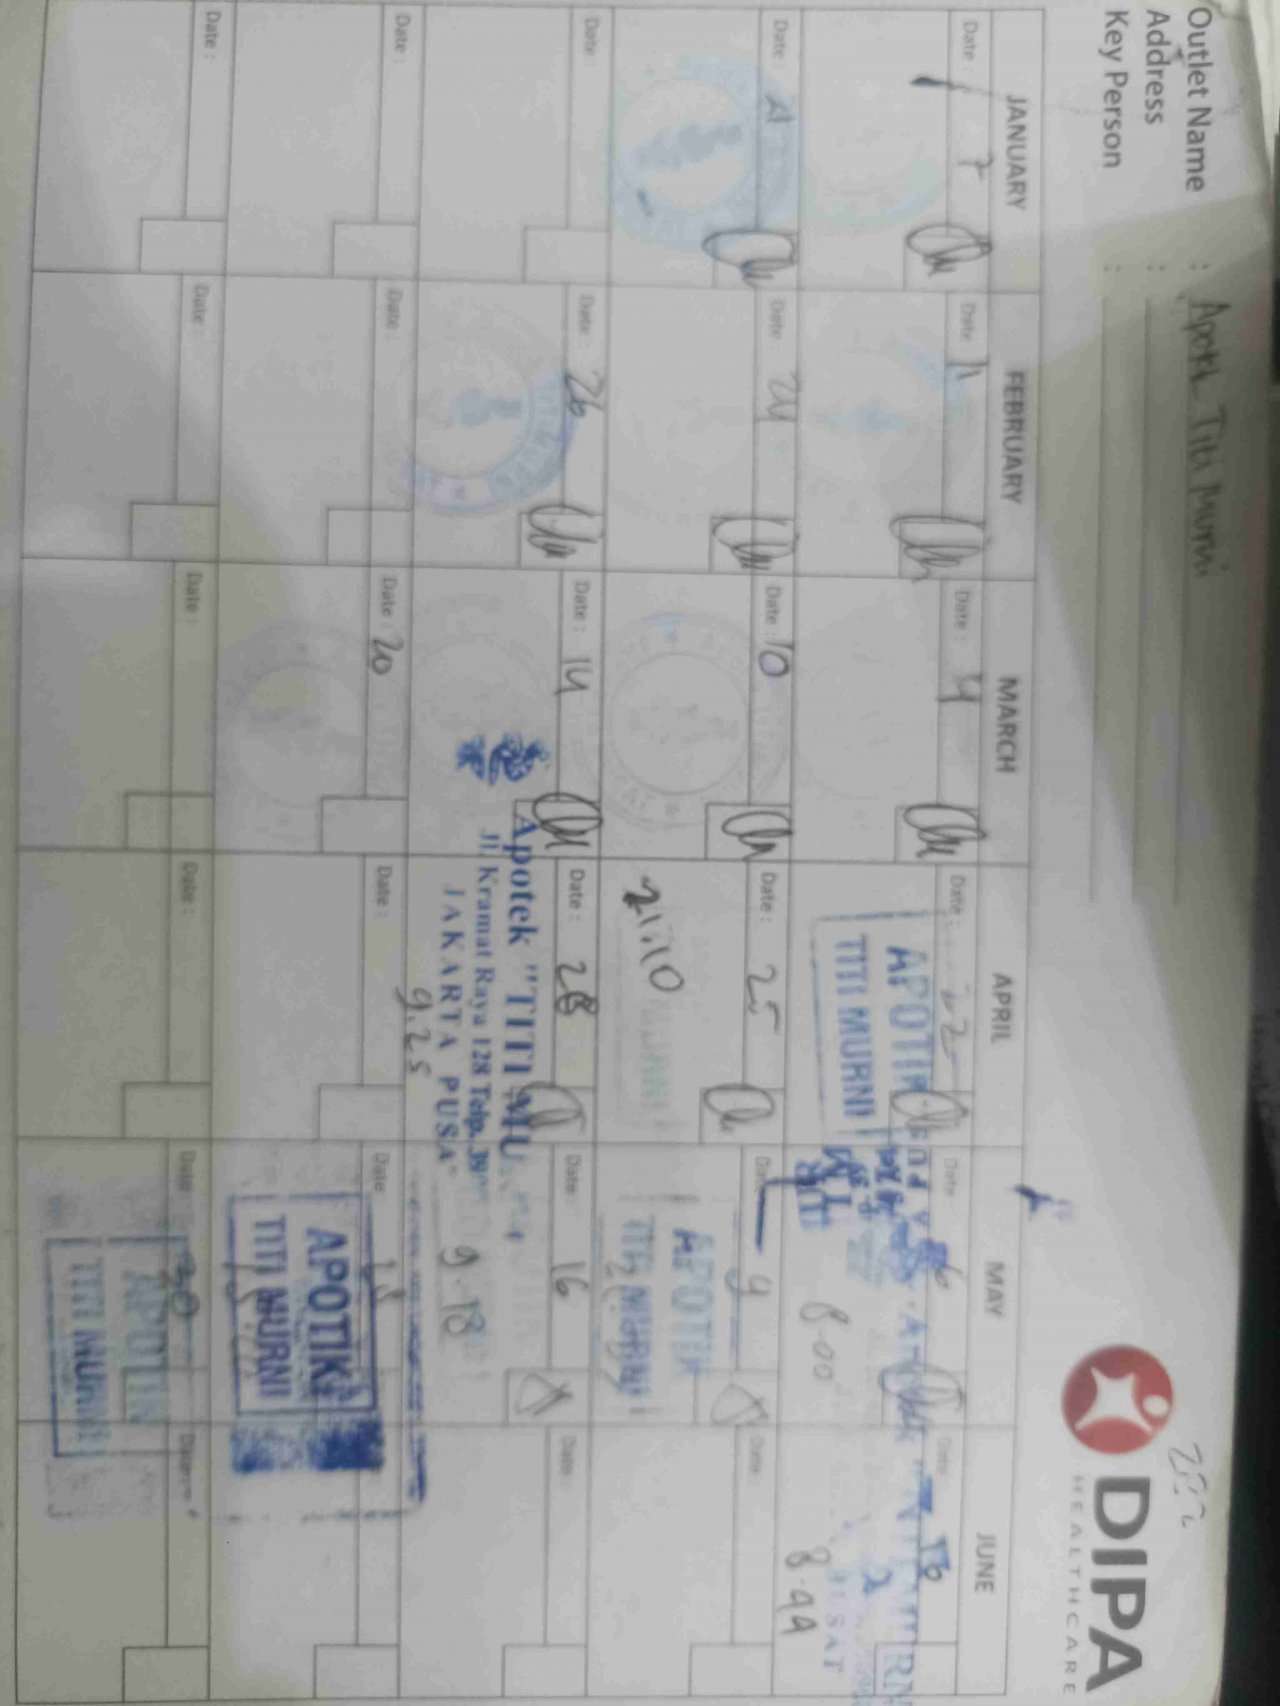 Outlet Name : Apotik Titi Murni
Address :
Key Person :
DIPA
HEALTHCARE
JANUARY FEBRUARY MARCH APRIL MAY JUNE
Date : 7 Date : 11 Date : 4 Date : 22 Date : 6 Date : 16
APOTIK
TITI MURNI
8.00
8.44
Date : 21 Date : 24 Date : 10 Date : 25 Date : 4 Date :
APOTIK
TITI MURNI
Date : Date : 26 Date : 14 Date : 28 Date : 16 Date :
Apotek "TITI MU
Jl. Kramat Raya 128 Telp. 39
JAKARTA PUSA
9.25
9.18
Date : Date : Date : 20 Date : Date : 18
APOTIK
TITI MURNI
Date : Date : Date : Date : Date : 20 Date :
APOTIK
TITI MURNI